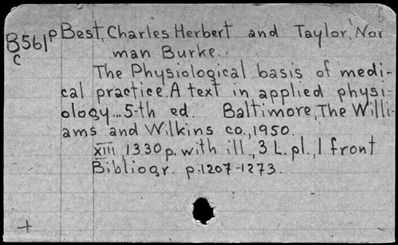 B561p Best, Charles Herbert and Taylor, Nor
c man Burke..
The Physiological basis of medi-
cal practice. A text in applied physi-
ology... 5-th ed. Baltimore, The Willi-
ams and Wilkins co., 1950.
xiii, 1330 p. with ill., 3 L. pl., 1 front
Bibliogr. p. 1207-1273.